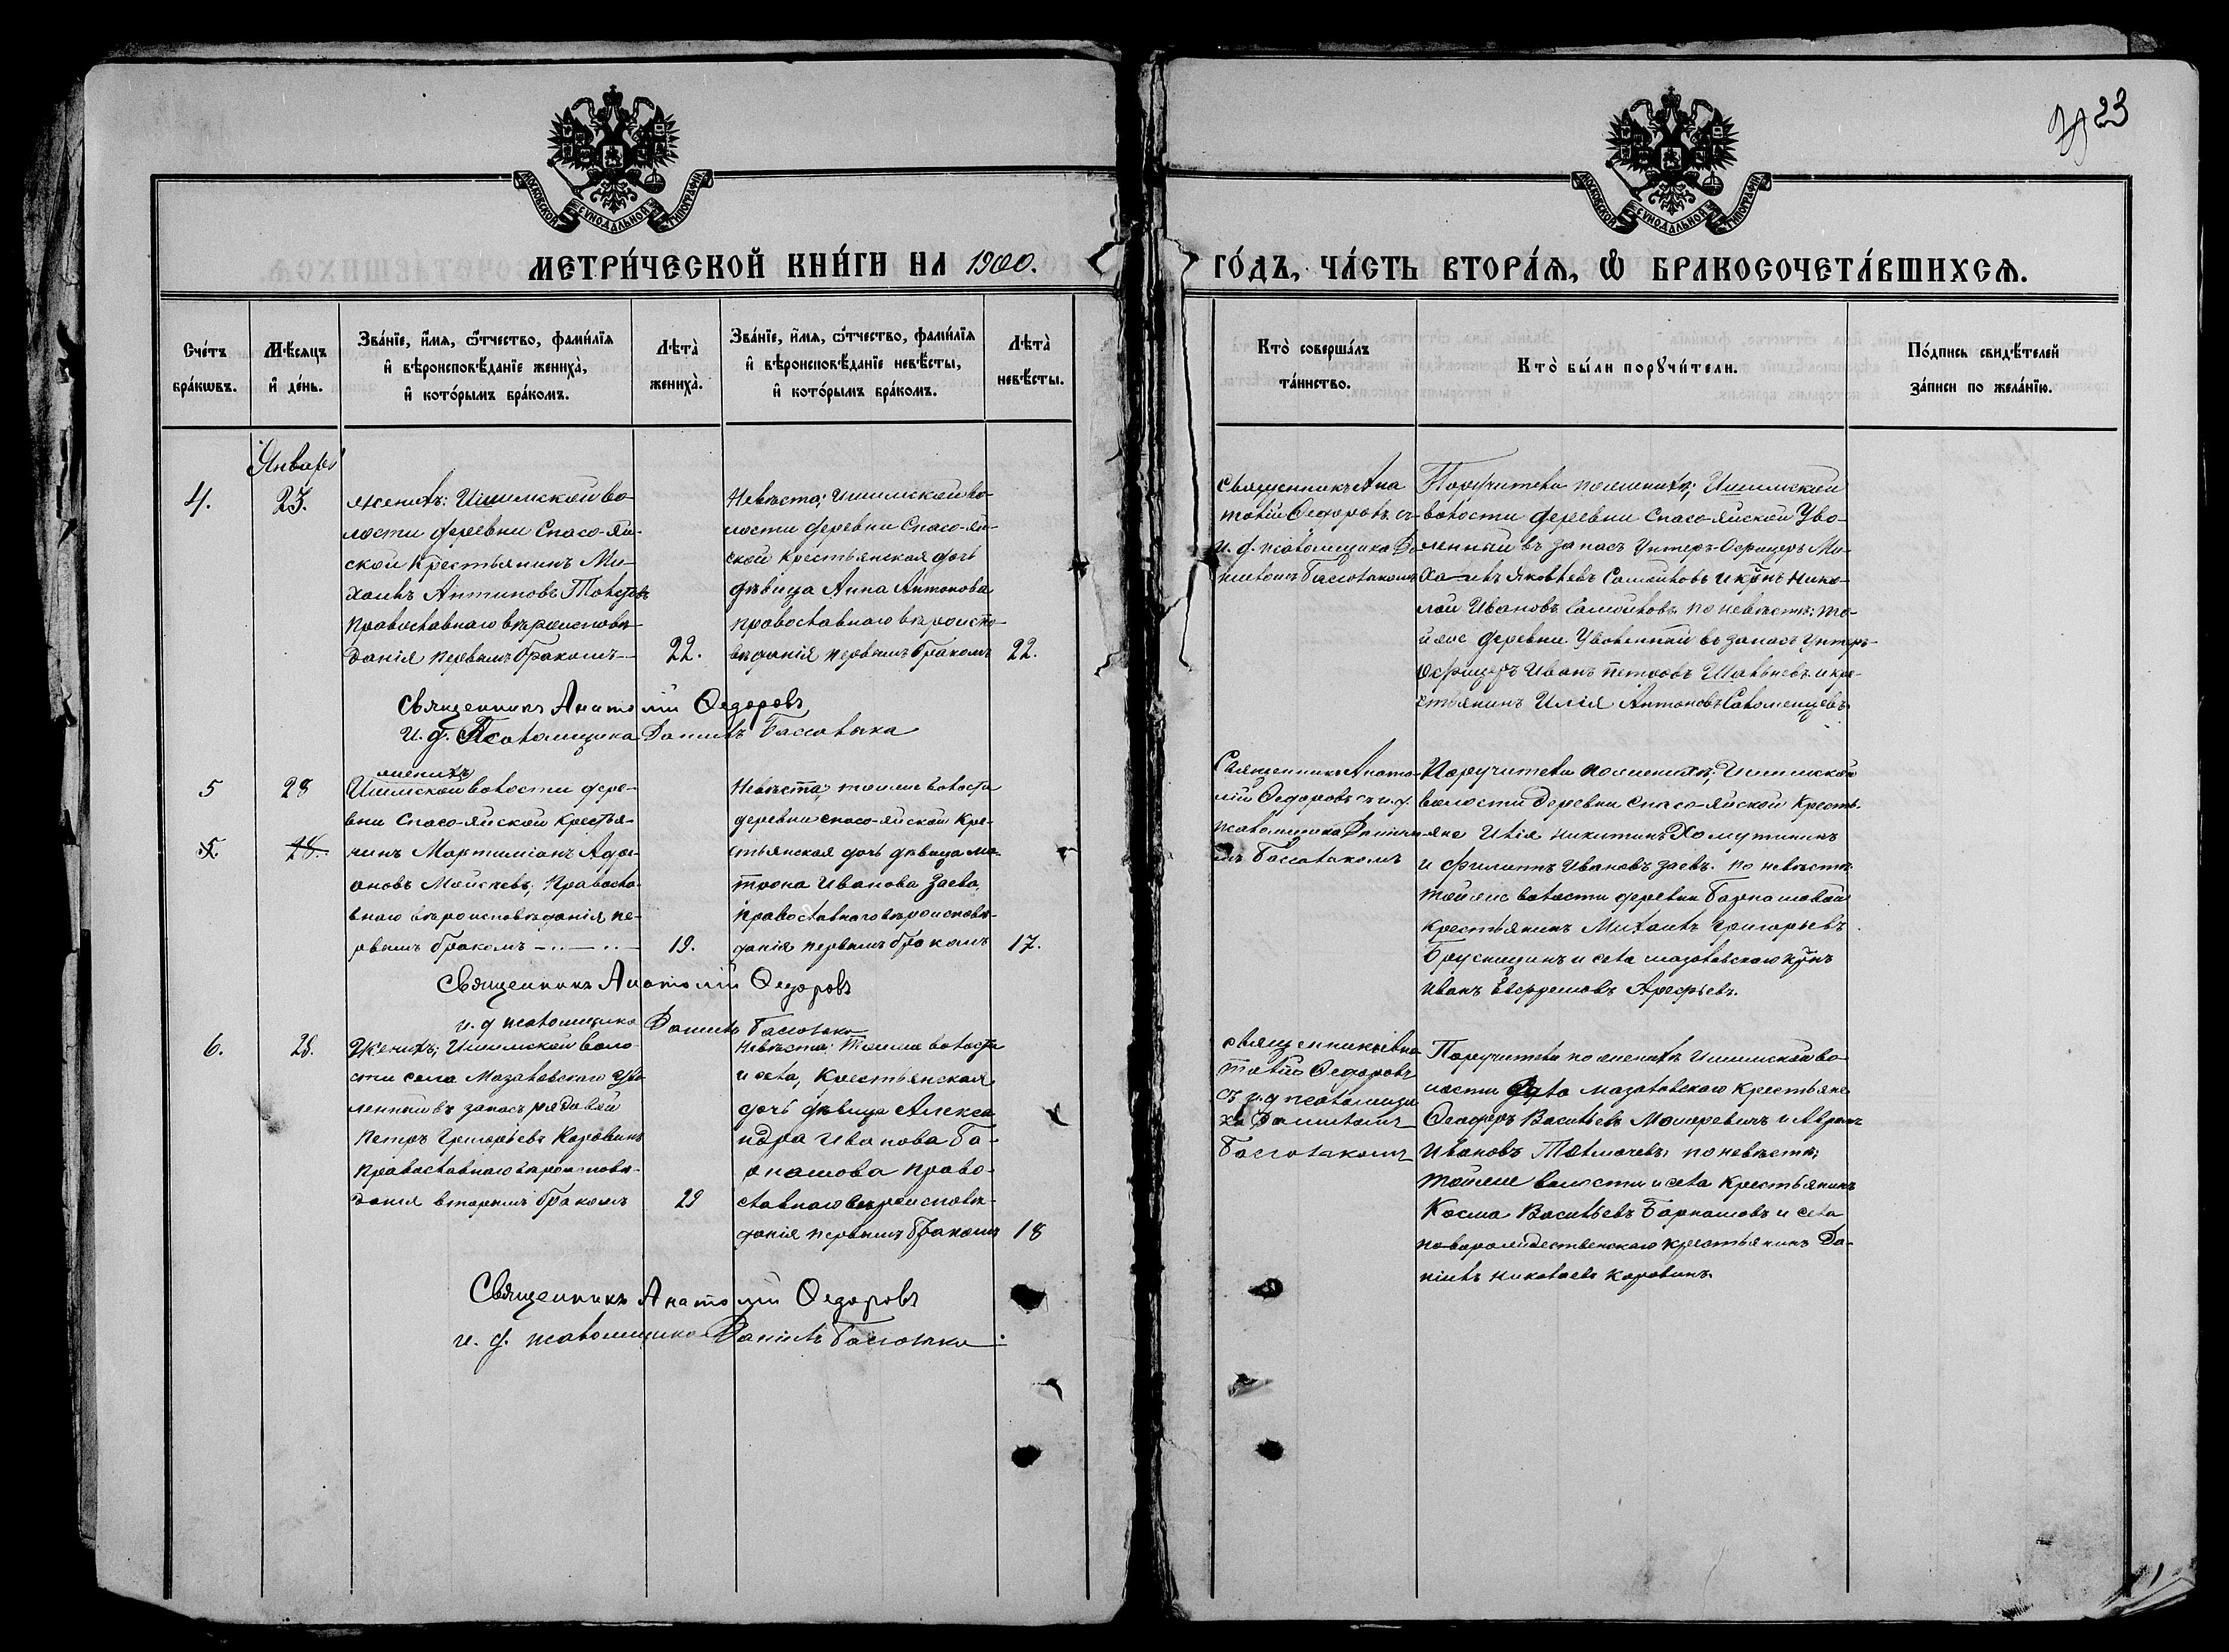 23
МОСКОВСКОЙ СУНОДАЛЬНОЙ ТИПОГРАФІИ
МОСКОВСКОЙ СУНОДАЛЬНОЙ ТИПОГРАФІИ
МЕТРИ́ЧЕСКОЙ КНИ́ГИ НА 1900.
ГО́ДЪ, ЧА́СТЬ ВТОРА́Ѧ, Ѽ БРАКОСОЧЕТА́ВШИХСѦ.
Сче́тъ
бра́кωвъ.
Мѣ́сяцъ
и҆ де́нь.
Зва́нїе, и҆́мѧ, ѻ҆́тчество, фами́лїѧ
и҆ вѣроисповѣ́данїе жениха̀,
и҆ кото́рымъ бра́комъ.
Лѣта̀
жениха̀.
Зва́нїе, и҆́мѧ, ѻ҆́тчество, фами́лїѧ
и҆ вѣроисповѣ́данїе невѣ́сты,
и҆ кото́рымъ бра́комъ.
Лѣта̀
невѣ́сты.
Кто̀ соверша́лъ
та́инство.
Кто̀ бы́ли порꙋчи́тели.
По́дпись свидѣ́телей
за́писи по жела́нїю.
Январь
4.
23.
Женихъ: Ишимской во-
лости деревни Спасо-Яй-
ской Крестьянинъ Ми-
хаилъ Антиповъ
православнаго вѣроисповѣ-
данія первымъ бракомъ
22.
Невѣста; Ишимской во-
лости деревни Спасо-Яй-
ской Крестьянская дочь
дѣвица Анна Антонова
православнаго вѣроиспо-
вѣданія первымъ бракомъ
22.
Священникъ Ана
толій Ѳедоровъ съ
и. д. псаломщика Да-
ниломъ
Поручители по женихѣ; Ишимской
волости деревни Спасо-Яйской Уво-
ленный въ запасъ Унтеръ-Офицеръ Ми-
хаилъ Яковлевъ Самойловъ и кр̃нъ Нико-
лай Ивановъ Самойловъ по невѣстѣ; то-
йже деревни Уволенный въ запасъ Унтеръ-
Офицеръ Иванъ Петровъ и кре-
стьянинъ Илія Антоновъ
Священникъ Анатолій Ѳедоровъ
И. д. Псаломщика Данилъ
5
28
женихъ
Ишимской волости дере-
вни Спасо-Яйской Крестья-
5.
28.
нинъ Мартиміанъ
Моисеевъ, Правосла-
внаго вѣроисповѣданія пе-
рвымъ бракомъ
19.
Невѣста; тойже волости
деревни Спасо-Яйской Кре-
стьянская дочь дѣвица Ма-
трона Иванова Заева,
православнаго вѣроисповѣ-
данія первымъ бракомъ
17.
Священникъ Анато-
лій Ѳедоровъ съ и. д.
псаломщика Данило-
мъ
Поручители по женихѣ; Ишимской
волости деревни Спасо-Яйской Кресть-
яне Илія Никитинъ Хомутининъ
и Филиппъ Ивановъ Заевъ. по невѣстѣ
тойже волости деревни Барнашовой
Крестьянинъ Михаилъ Григорьевъ
Брусницинъ и села Мазаловскаго кр̃нъ
Иванъ Арефьевъ.
Священникъ Анатолій Ѳедоровъ
и. д псаломщика Данилъ
6.
28.
Женихъ; Ишимской воло-
сти села Мазаловскаго Уво-
ленный въ запасъ рядовой
Петръ Григорьевъ Коровинъ
Православнаго вѣроисповѣ-
данія вторымъ бракомъ
29
Невѣста: Тойже волости
и села, Крестьянская
дочь дѣвица Алекса
ндра Иванова Ба-
рнашова право-
славнаго вѣроисповѣ-
данія первымъ бракомъ
18
Священникъ Ана
толій Ѳедоровъ
съ и.д псаломщи
ка Даниломъ
Поручители по женихѣ Ишимской во-
лости села Мазаловскаго Крестьяне
Ѳеодоръ Васильевъ и
Ивановъ Толмачевъ; по невѣстѣ;
Тойже волости и села Крестьянинъ
Косма Васильевъ Барнашовъ и села
Новорождественскаго крестьянинъ Да-
ніилъ Николаевъ Коровинъ.
Священникъ Анатолій Ѳедоровъ
и. д. псаломщика Данилъ